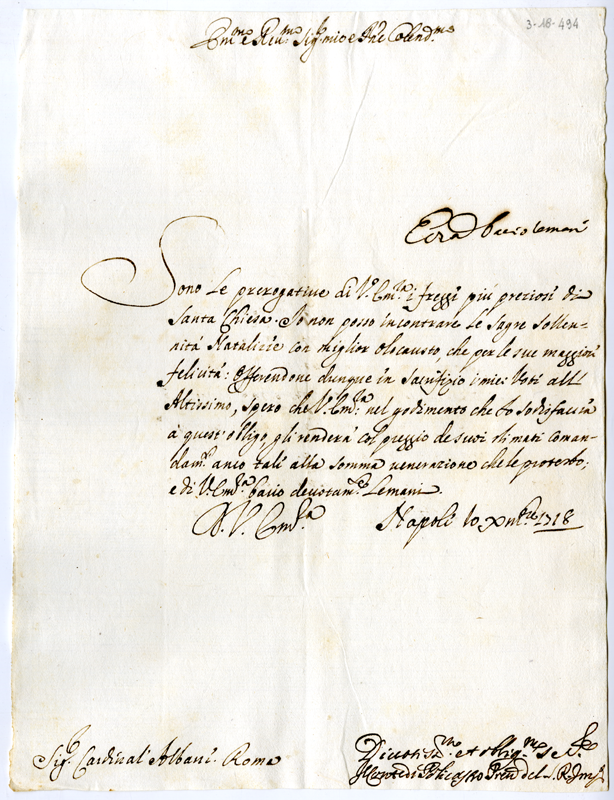 3-18-494
Em.mo e Rev.mo Sig.r mio e P.ne Colend.mo
E cra bacio le mani
Sono le prerogative di V.ra Em.za i freggi più preziosi di
Santa Chiesa. Io non posso incontrare le sagre sollen=
nità Natalizie con miglior olocausto, che per le sue maggiori
felicità: Offerendone dunque in sacrifizio i miei Voti all'
Altissimo, spero che V. Em.za nel godimento che Io sodisfaccia
à quest'obligo, gli renderà col preggio de suoi stimati coman=
dam.ti anco tali alla somma venerazione che le protesto;
e di V. Em.za bacio devotam.e le mani.
D. V. Em.za Napoli lo Xmbre 1718
Sig.r Cardinal Albani Roma
Divotis.mo et oblig.mo se.re
Il Conte di Policastro